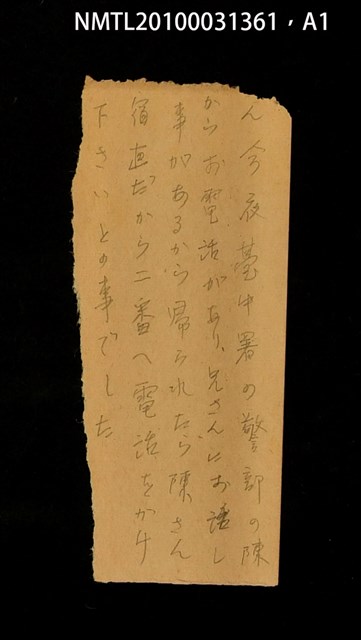 NMTL20100031361，A1
ん 今夜臺中署の警部の陳
からお電話があり、兄さんにお話し
事があるから帰られたら陳さん
宿直だから二番へ電話をかけ
下さいとの事でした